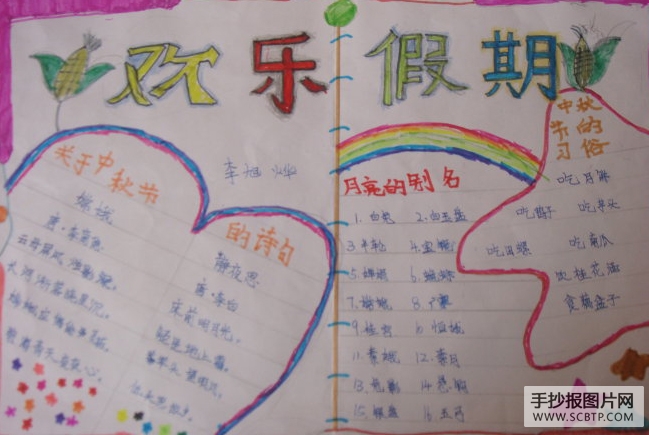 欢乐假期
关于中秋节
的诗句
嫦娥
唐·李商隐
云母屏风烛影深,
长河渐落晓星沉。
嫦娥应悔偷灵药,
碧海青天夜夜心。
静夜思
唐·李白
床前明月光,
疑是地上霜。
举头望明月,
低头思故乡。
月亮的别名
1.白兔 2.白玉盘
3.半轮 4.宝镜
5.婵娟 6.蟾蜍
7.嫦娥 8.广寒
9.桂宫
11.素娥 12.素月
13.兔影 14.悬钩
15.银盘 16.玉弓
中秋
节的
习俗
吃月饼
吃鸭子 吃芋头
吃田螺 吃南瓜
饮桂花酒
食藕盒子
手抄报图片网
WWW.SCBTP.COM